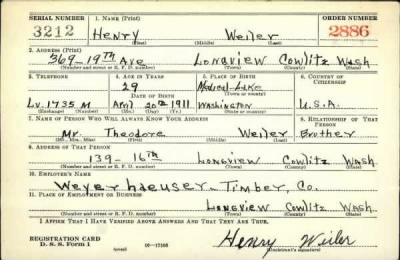 SERIAL NUMBER 1. NAME (Print) ORDER NUMBER
3212 Henry Weiler 2886
(First) (Middle) (Last)
2. ADDRESS (Print)
369-19TH Ave Longview Cowlitz Wash.
(Number and street or R. F. D. number) (Town) (County) (State)
3. TELEPHONE 4. AGE IN YEARS 5. PLACE OF BIRTH 6. COUNTRY OF CITIZENSHIP
29 Medical-Lake
DATE OF BIRTH (Town or county)
Lv. 1735 M Apr. 20th 1911 Washington U.S.A.
(Exchange) (Number) (Mo.) (Day) (Yr.) (State or country)
7. NAME OF PERSON WHO WILL ALWAYS KNOW YOUR ADDRESS 8. RELATIONSHIP OF THAT PERSON
Mr. Theodore Weiler Brother
(Mr., Mrs., Miss) (First) (Middle) (Last)
9. ADDRESS OF THAT PERSON
139-16th Longview Cowlitz Wash.
(Number and street or R. F. D. number) (Town) (County) (State)
10. EMPLOYER'S NAME
Weyerhaeuser-Timber, Co.
11. PLACE OF EMPLOYMENT OR BUSINESS
Longview Cowlitz Wash.
(Number and street or R. F. D. number) (Town) (County) (State)
I AFFIRM THAT I HAVE VERIFIED ABOVE ANSWERS AND THAT THEY ARE TRUE.
REGISTRATION CARD
D. S. S. Form 1 (over) 16-17105 Henry Weiler
(Registrant's signature)